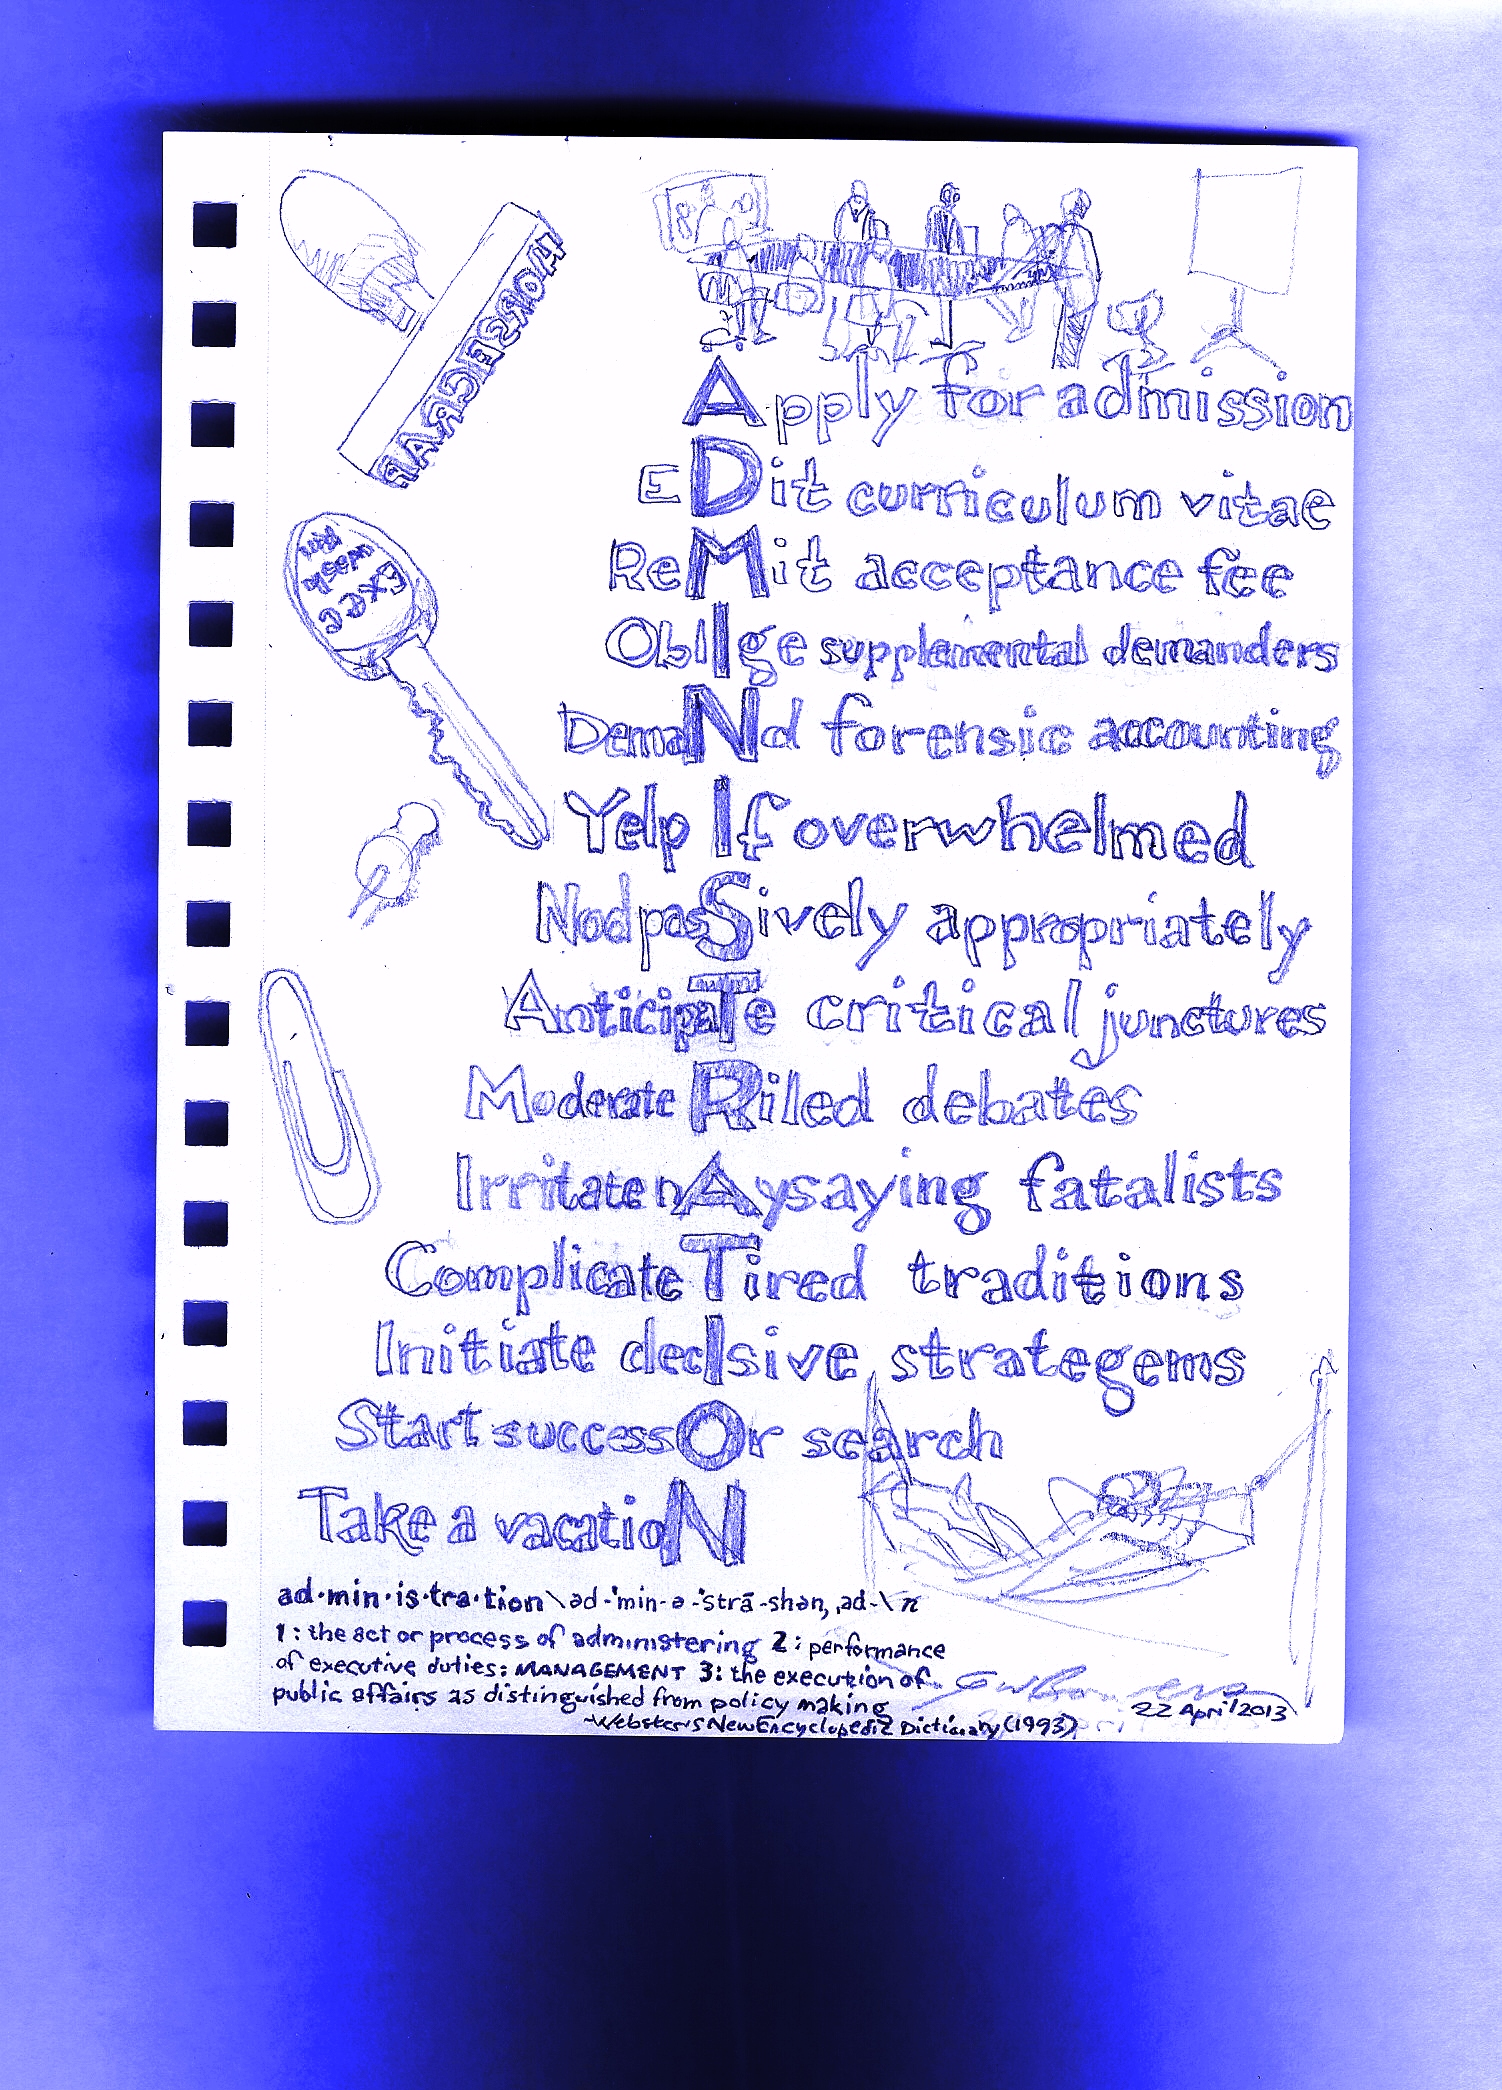 Exec
Apply for admission
EDit curriculum vitae
ReMit acceptance fee
OblIge supplemental demanders
DemaNd forensic accounting
Yelp If overwhelmed
Nod pasSively appropriately
AnticipaTe critical junctures
Moderate Riled debates
Irritate nAysaying fatalists
Complicate Tired traditions
Initiate decIsive strategems
Start successOr search
Take a vacatioN
ad·min·is·tra·tion \ əd-'min-ə-'strā-shən, ,ad- \ n
1 : the act or process of administering 2 : performance
of executive duties : MANAGEMENT 3 : the execution of
public affairs as distinguished from policy making
~Webster's New Encyclopedic Dictionary (1993)
22 April 2013